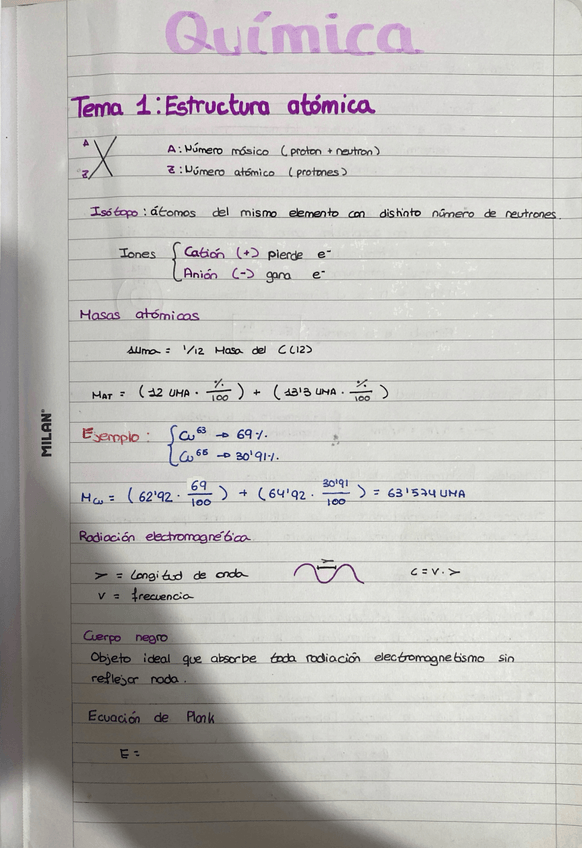 Química
Tema 1: Estructura atómica
A
Z
X
A: Número másico (proton + neutron)
Z: Número atómico (protones)
Isótopo: átomos del mismo elemento con distinto número de neutrones.
Iones { Catión (+) pierde e⁻
Anión (-) gana e⁻
Masas atómicas
1uma = 1/12 Masa del C(12)
MAT = (12 UMA · %/100) + (13'3 UMA · %/100)
Ejemplo: { Cu⁶³ → 69%.
Cu⁶⁵ → 30'91%.
MCu = (62'92 · 69/100) + (64'92 · 30'91/100) = 63'574 UMA
Radiación electromagnética
λ = Longitud de onda
λ
C = V · λ
V = frecuencia
Cuerpo negro
Objeto ideal que absorbe toda radiación electromagnetismo sin
reflejar nada.
Ecuación de Plank
E =
MILAN®